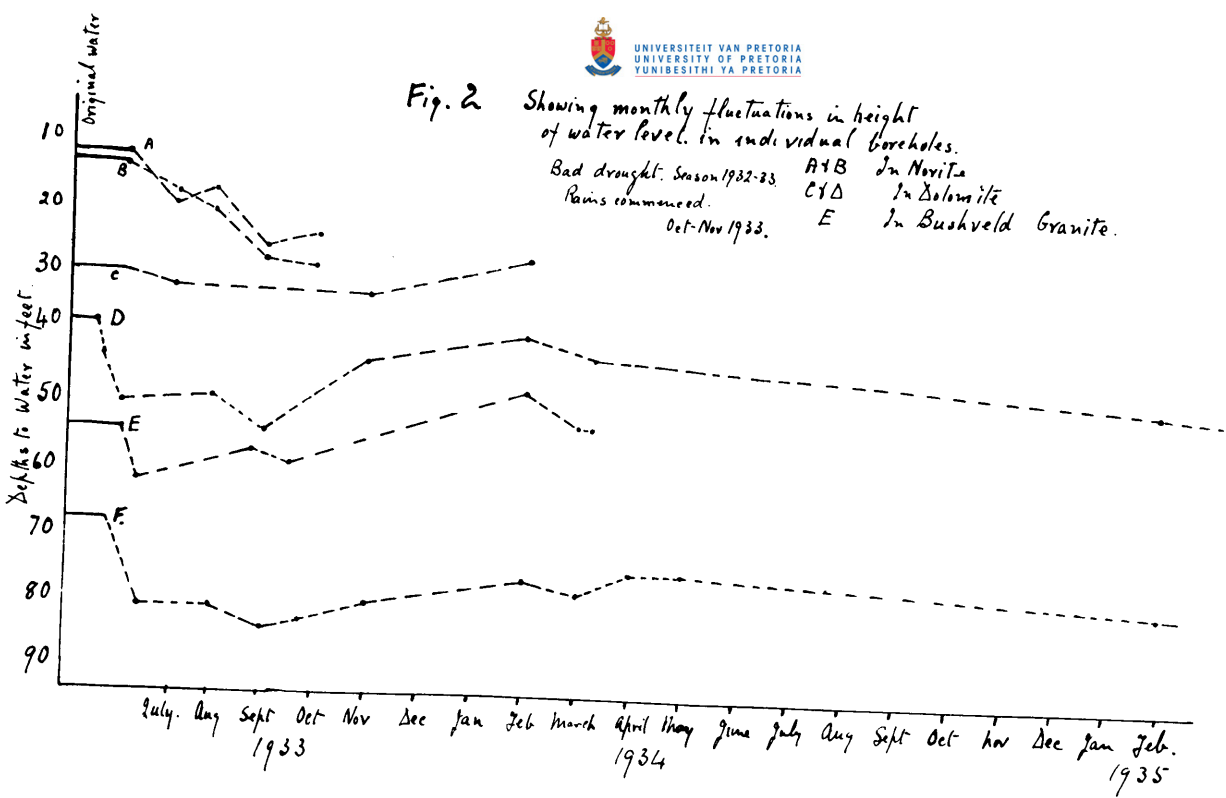 UNIVERSITEIT VAN PRETORIA
UNIVERSITY OF PRETORIA
YUNIBESITHI YA PRETORIA
Fig. 2 Showing monthly fluctuations in height
of water level. in individual boreholes.
Bad drought. Season 1932-33.
Rains commenced.
Oct-Nov 1933.
A&B In Norite
C&D In Dolomite
E In Bushveld Granite.
Original water
Depths to Water in feet.
10
20
30
40
50
60
70
80
90
A
B
C
D
E
F.
July. Aug Sept Oct Nov Dec Jan Feb March April May June July Aug Sept Oct Nov Dec Jan Feb.
1933 1934 1935